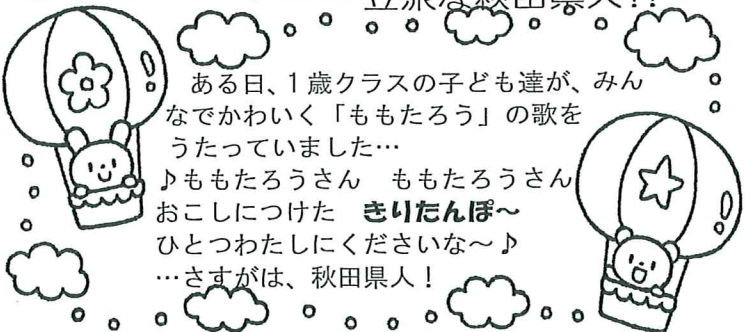 立派な秋田県人!!
ある日、1歳クラスの子ども達が、みん
なでかわいく「ももたろう」の歌を
うたっていました…
♪ももたろうさん　ももたろうさん
おこしにつけた　きりたんぽ～
ひとつわたしにくださいな～♪
…さすがは、秋田県人！